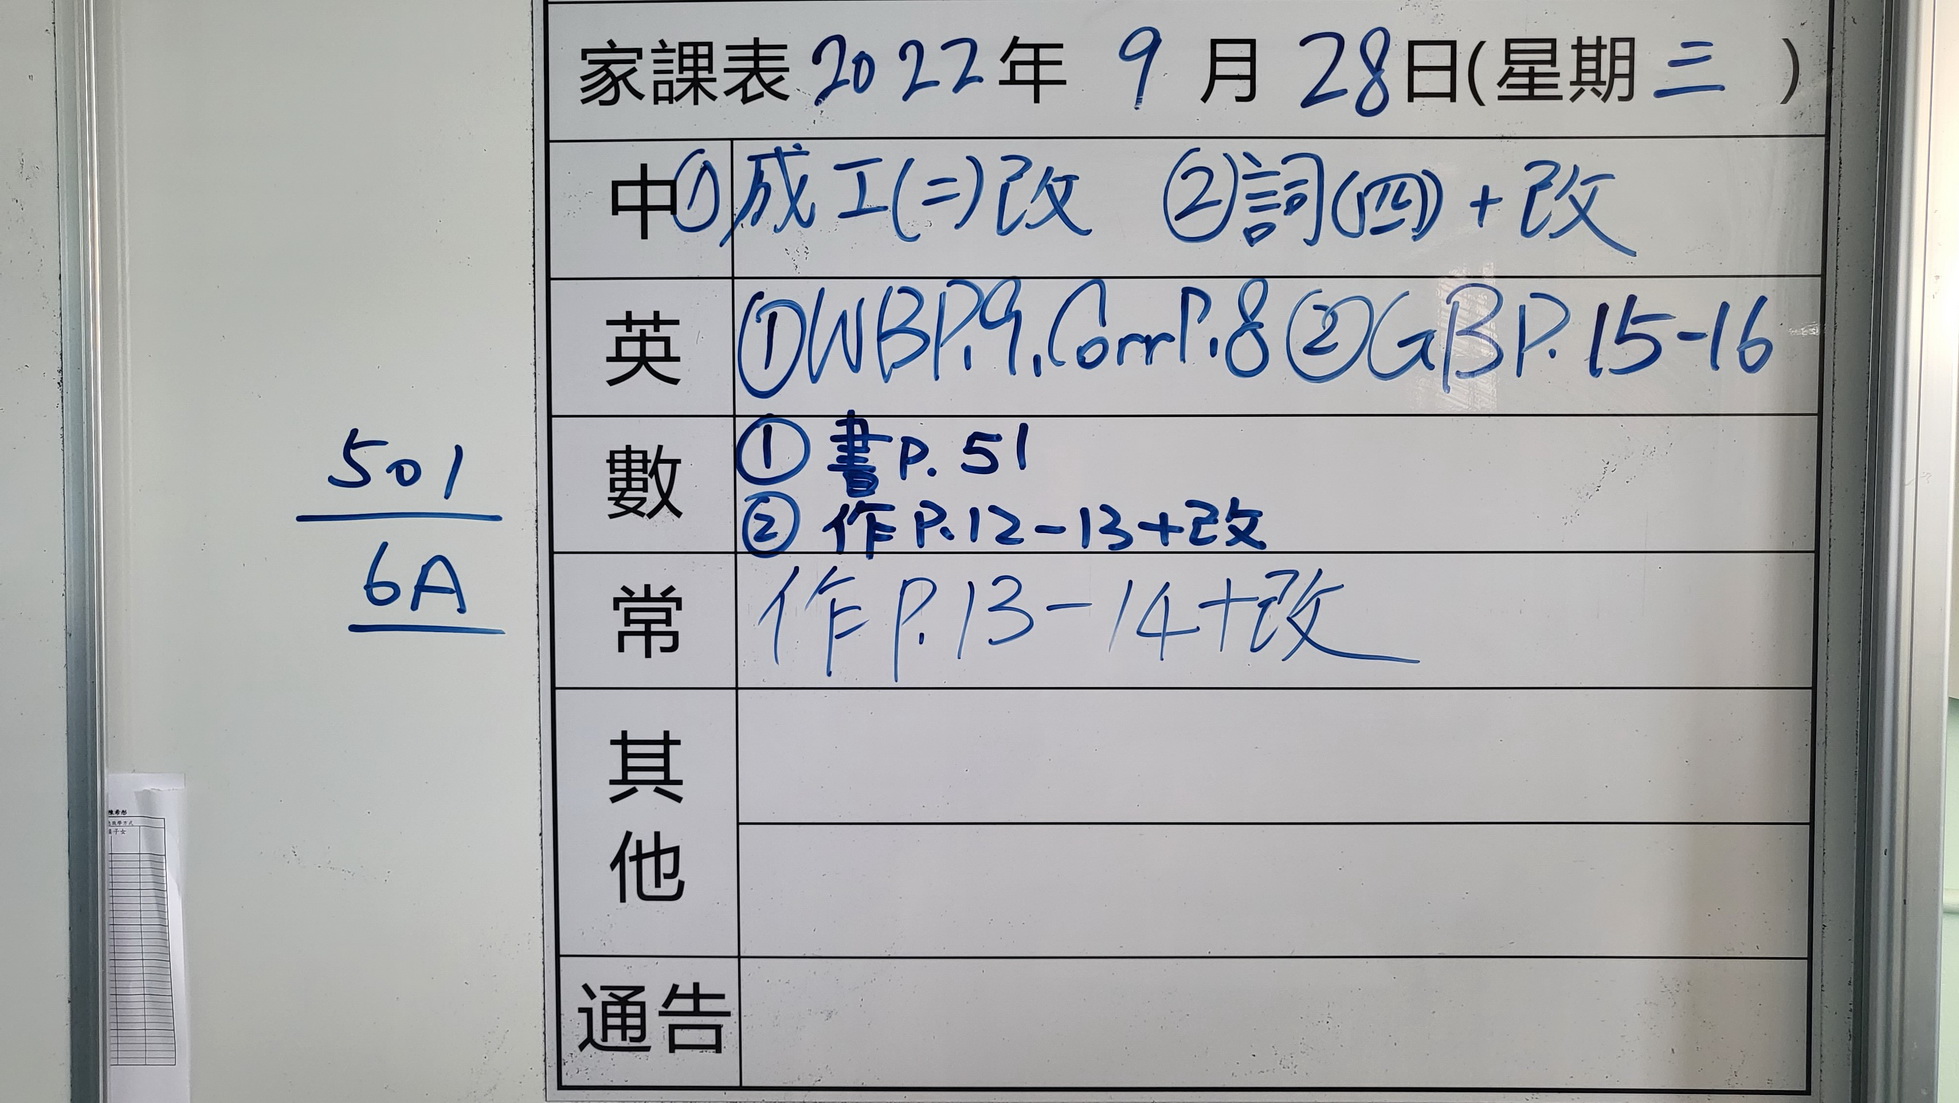 家課表 2022年 9 月 28日(星期三 )
中 ①成工(二)改 ②詞(四)+改
英 ①WBP.9,CorrP.8 ②GBP.15-16
數 ① 書P.51
② 作P.12-13+改
常 作P.13-14+改
其他
通告
501
6A